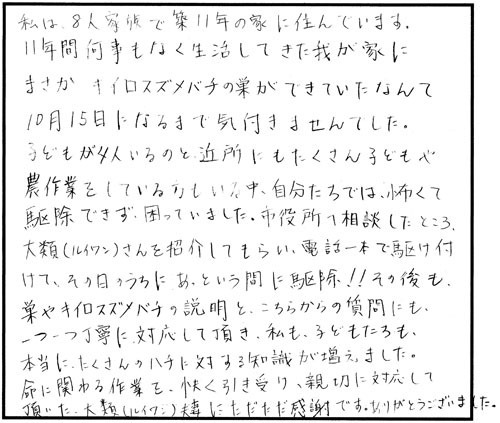 私は、8人家族で築11年の家に住んでいます。
11年間何事もなく生活してきた我が家に
まさか キイロスズメバチの巣ができていたなんて
10月15日になるまで気付きませんでした。
子どもが4人いるのと近所にもたくさん子どもや
農作業をしている方もいる中、自分たちでは、怖くて
駆除できず、困っていました。市役所へ相談したところ、
大類(ルイワン)さんを紹介してもらい、電話一本で駆け付
けて、その日のうちに あっという間に駆除!!その後も、
巣やキイロスズメバチの説明と、こちらからの質問にも、
一つ一つ丁寧に、対応して頂き、私も、子どもたちも、
本当に、たくさんのハチに対する知識が増えました。
命に関わる作業を、快く引き受け、親切に対応して
頂いた、大類(ルイワン)様にただただ感謝です。ありがとうございました。